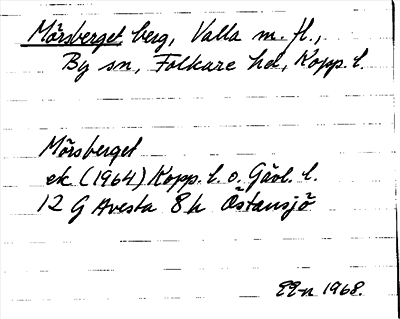 Mörsberget, berg, Valla m. fl.,
By sn, Folkare hd, Kopp. l.
Mörsberget
ek. (1964) Kopp. l. o. Gävl. l.
12 G Avesta 8 h Östansjö
1968.